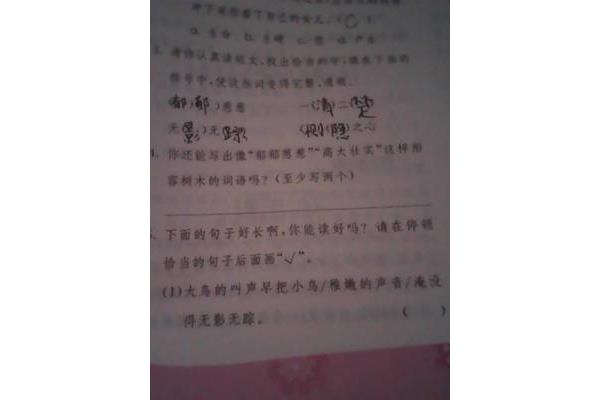 a. 生命 b. c. d.
请你认真读短文,找出恰当的字,填在下面的
括号中,使这些词变得完整、准确。
(郁)(郁)葱葱 一(清)二(楚)
无(影)无(踪) (恻)(隐)之心
你还能写出像“郁郁葱葱”“高大壮实”这样形
容树木的词语吗?(至少写两个)
下面的句子好长啊,你能读好吗?请在停顿
恰当的句子后面画“√”。
(1)大鸟的叫声早把小鸟/稚嫩的声音/淹没
得无影无踪。 ( )